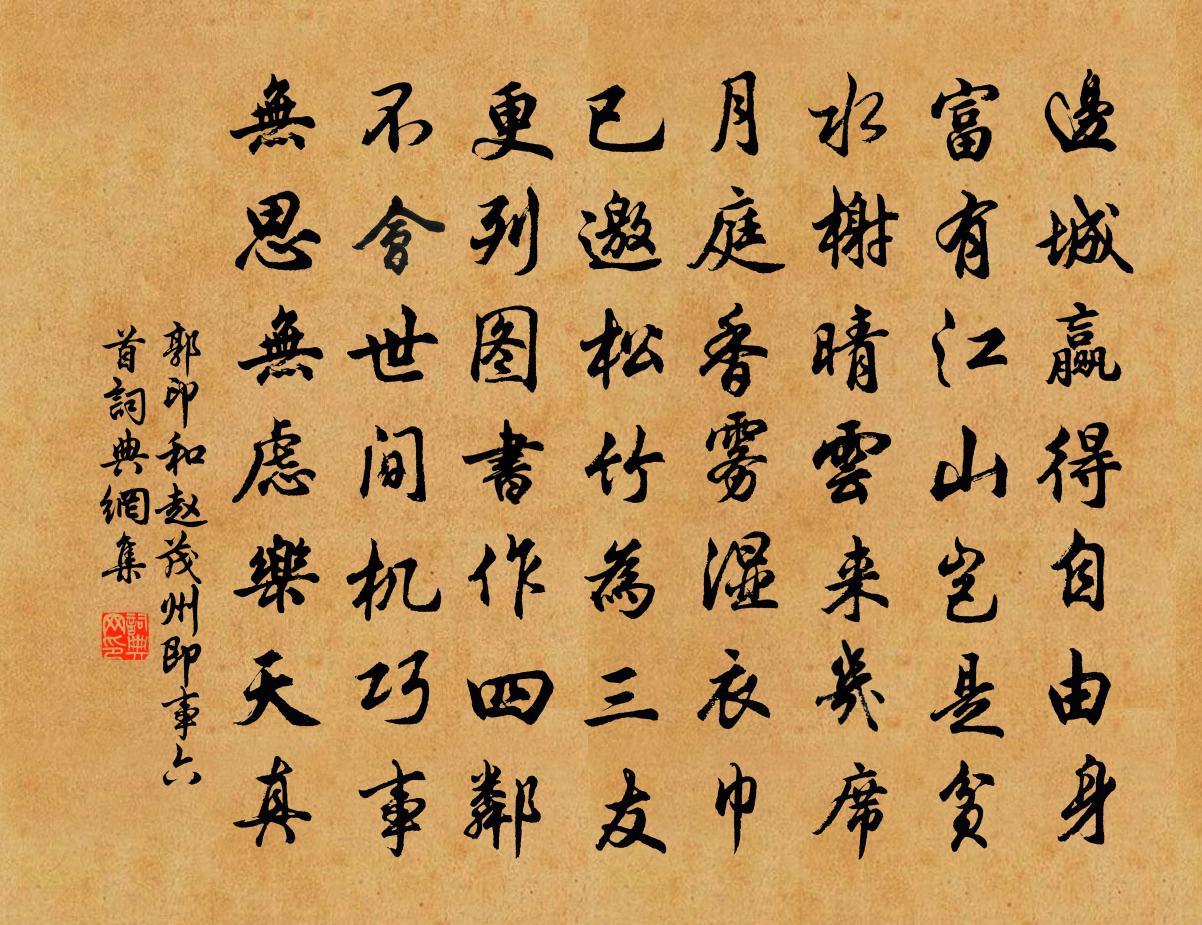 邊城贏得自由身
富有江山豈是貧
水榭晴雲来几席
月庭香雾湿衣巾
已邀松竹為三友
更列图書作四鄰
不會世间机巧事
無思無虑樂天真
郭印和赵茂州即事六
首詞典網集
詞典网印